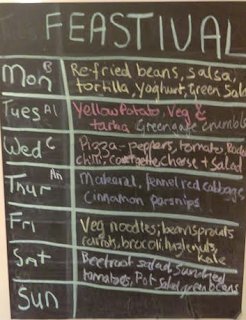 FEASTIVAL
Mon B Re-fried beans, salsa,
tortilla, Yoghurt, Green Salad
Tues Al Yellow Potato, Veg &
tarka Greengage crumble
Wed C Pizza - peppers, tomatoes
chilli, courgette, cheese + salad
Thur An Makeral, fennel red cabbage,
Cinnamon parsnips
Fri Veg noodles; beansprouts
carrots, brocoli, hazelnuts,
kale
Sat Beetroot salad, Sundried
tomatoes, Pot salad, green beans
Sun